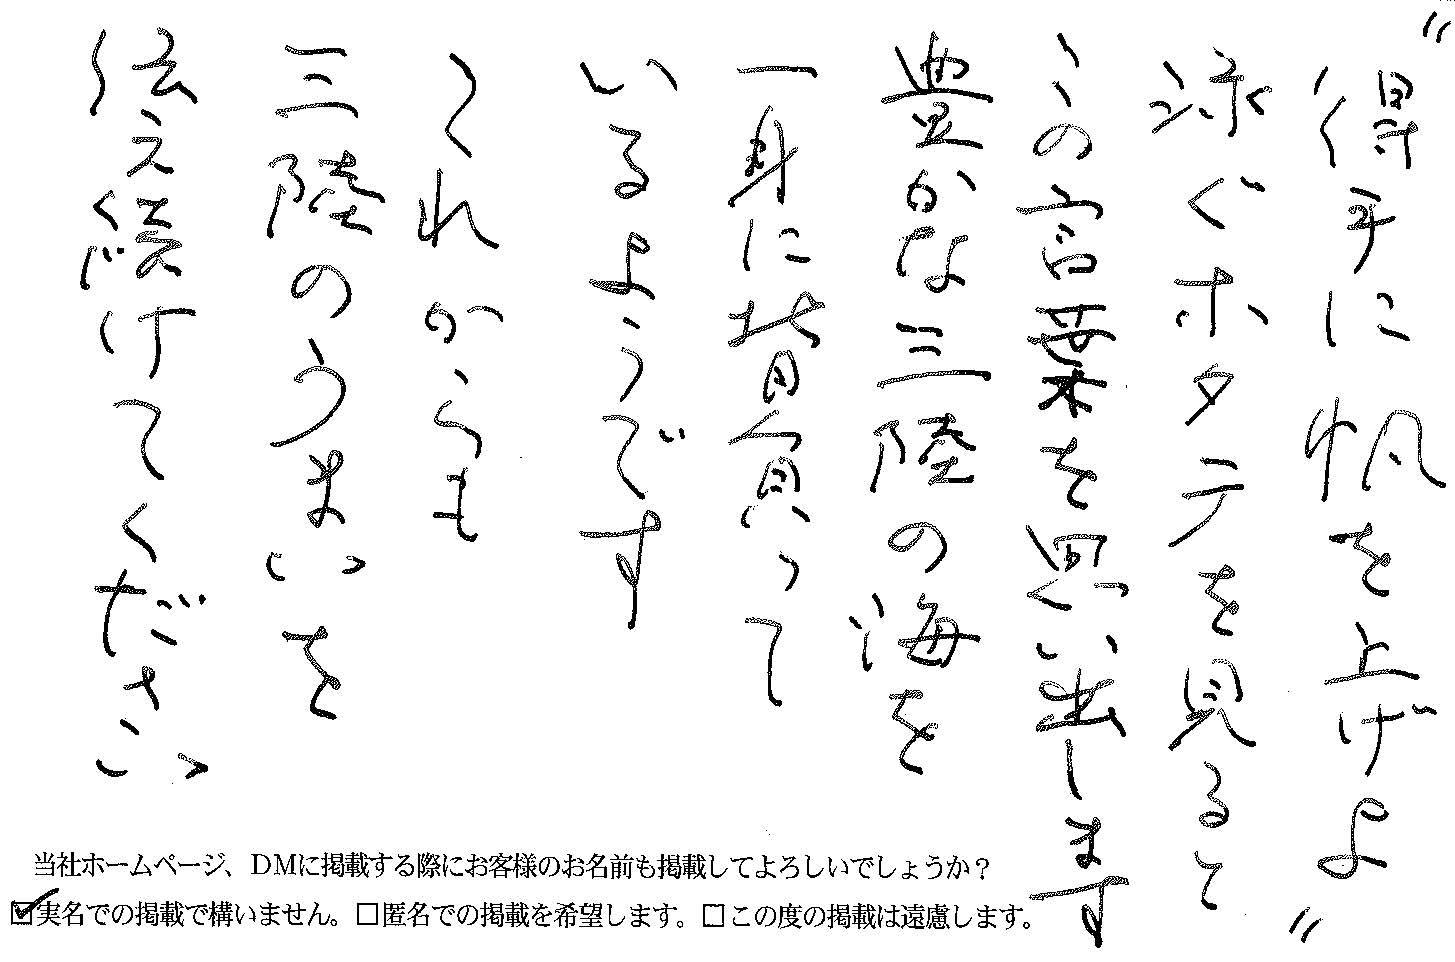 "得手に帆を上げよ"
泳ぐホタテを見ると
この言葉を思い出します
豊かな三陸の海を
一身に背負って
いるようです
これからも
三陸のうまいを
伝え続けてください
当社ホームページ、DMに掲載する際にお客様のお名前も掲載してよろしいでしょうか？
☑実名での掲載で構いません。□匿名での掲載を希望します。□この度の掲載は遠慮します。